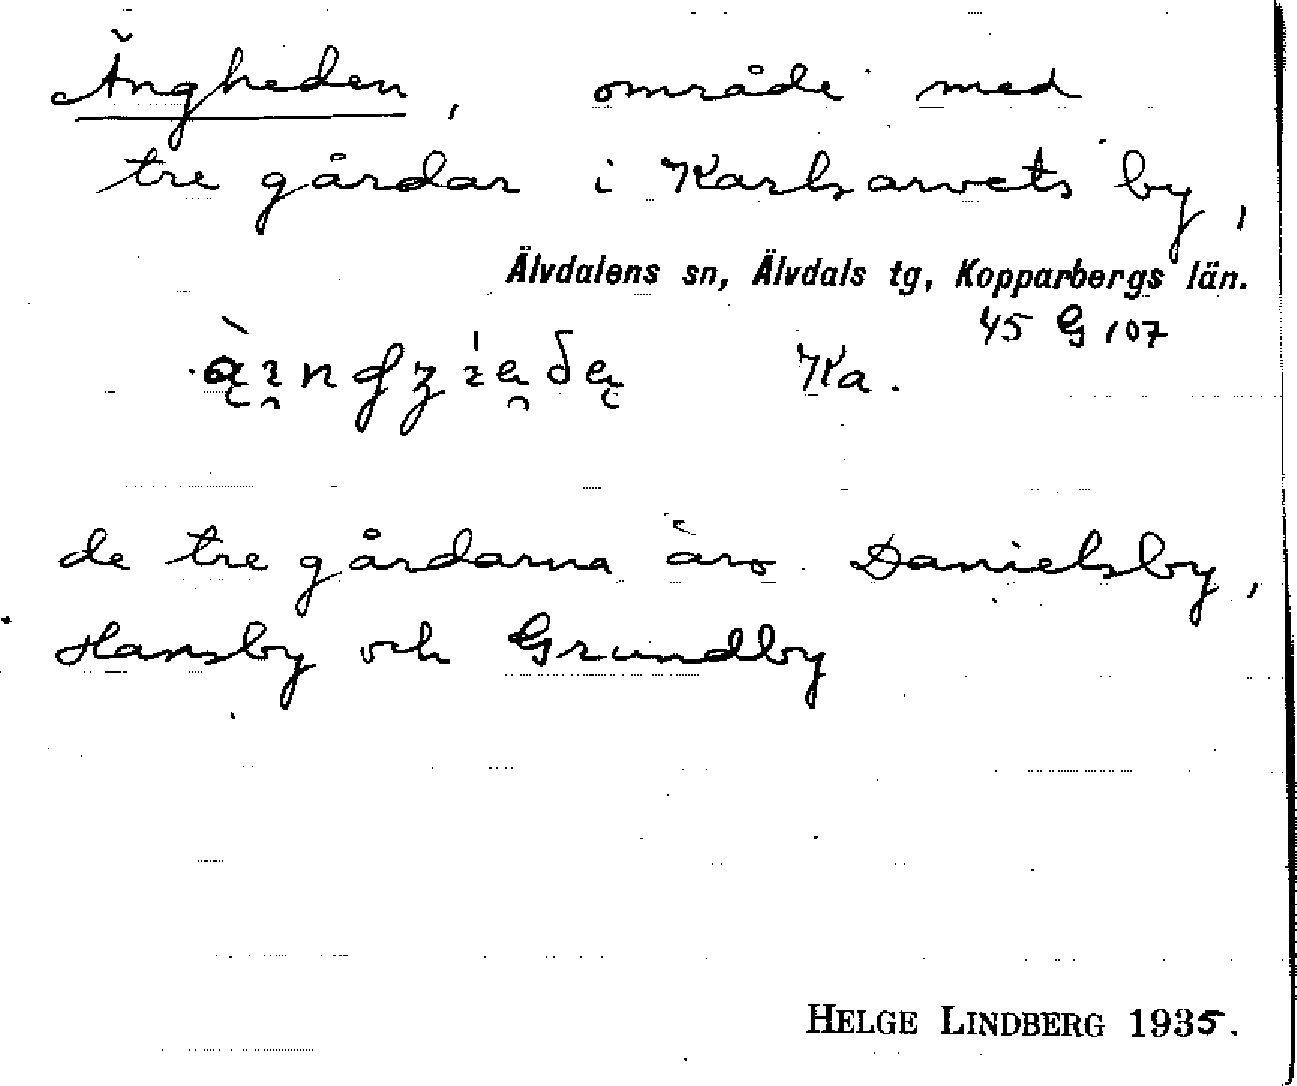 Ängheden, område med
tre gårdar i Karlsarvets by,
Älvdalens sn, Älvdals tg, Kopparbergs län.
45 G 107
Ka.
de tre gårdarna äro Danielsby,
Hansby och Grundby
HELGE LINDBERG 1935.